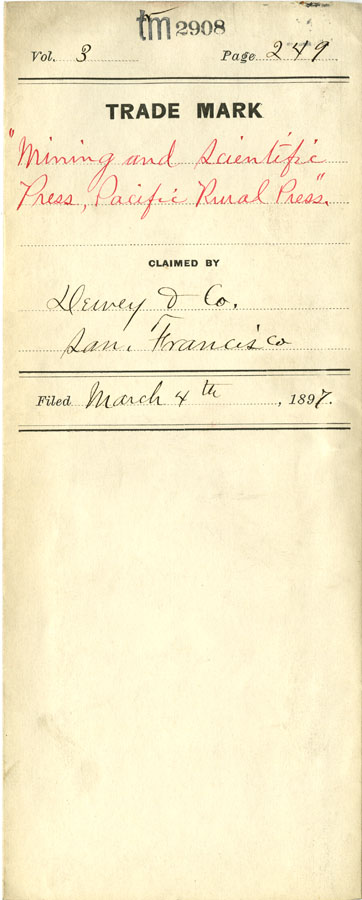 tm 2908
Vol. 3 Page 249
TRADE MARK
"Mining and Scientific
Press, Pacific Rural Press".
CLAIMED BY
Dewey & Co.
San Francisco
Filed March 4th, 1897.